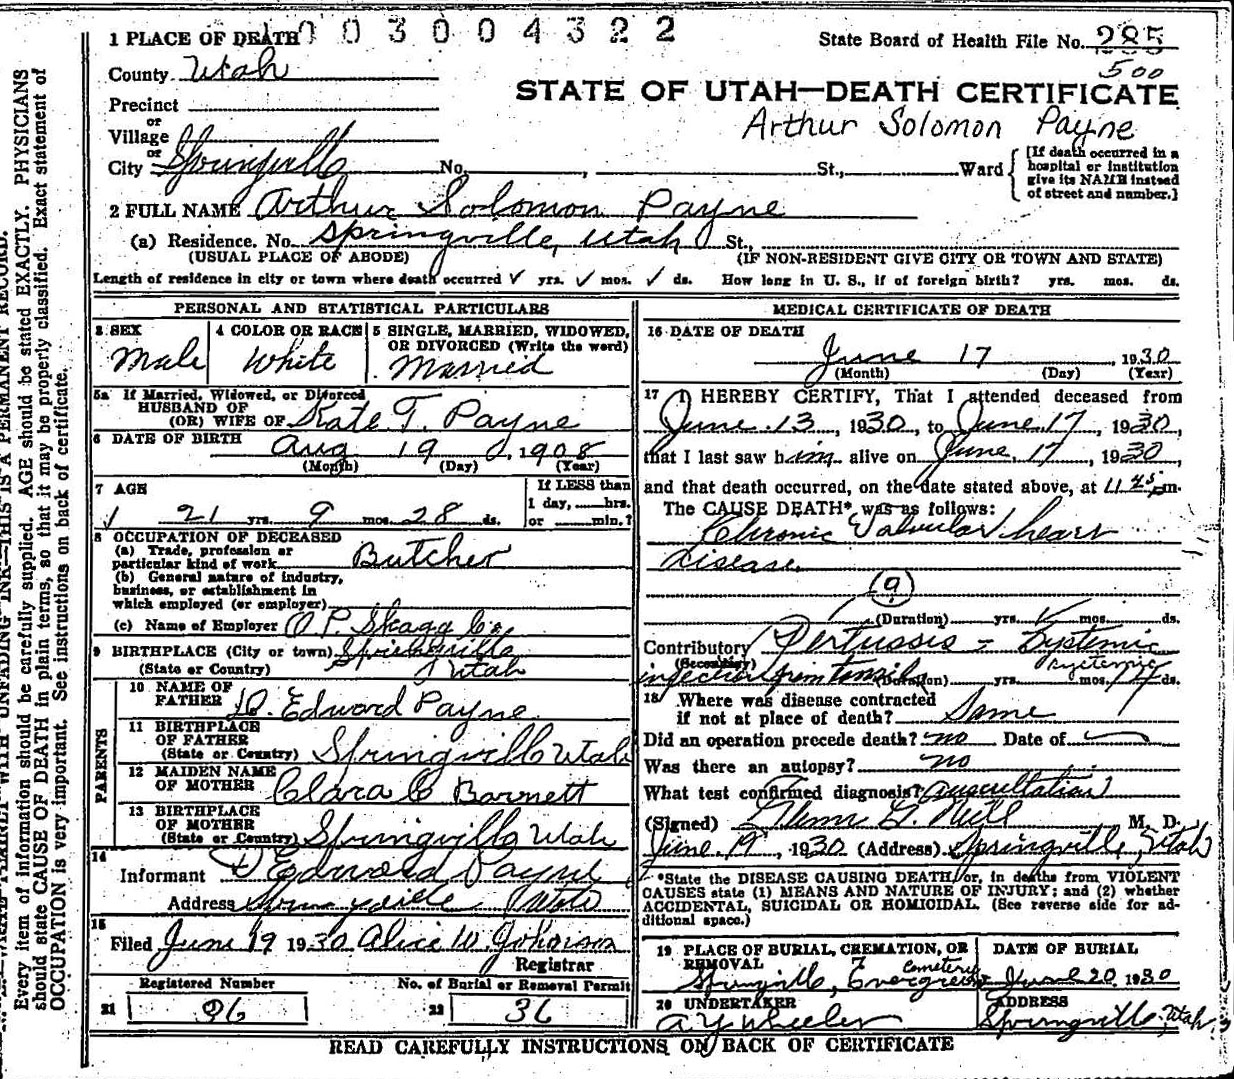 003004322
1 PLACE OF DEATH
State Board of Health File No. 285
County Utah
500
STATE OF UTAH—DEATH CERTIFICATE
Precinct
or
Village
Arthur Solomon Payne
or
City Springville No. , St., Ward
[If death occurred in a
hospital or institution
give its NAME instead
of street and number.]
2 FULL NAME Arthur Solomon Payne
(a) Residence. No. Springville, Utah St.,
(USUAL PLACE OF ABODE) (IF NON-RESIDENT GIVE CITY OR TOWN AND STATE)
Length of residence in city or town where death occurred ✓ yrs. ✓ mos. ✓ ds. How long in U. S., if of foreign birth? yrs. mos. ds.
PERSONAL AND STATISTICAL PARTICULARS
3 SEX
Male
4 COLOR OR RACE
White
5 SINGLE, MARRIED, WIDOWED,
OR DIVORCED (Write the word)
Married
5a If Married, Widowed, or Divorced
HUSBAND OF
(OR) WIFE OF Kate T. Payne
6 DATE OF BIRTH
Aug 19, 1908
(Month) (Day) (Year)
7 AGE
21 yrs. 9 mos. 28 ds.
If LESS than
1 day, hrs.
or min.?
8 OCCUPATION OF DECEASED
(a) Trade, profession or
particular kind of work Butcher
(b) General nature of industry,
business, or establishment in
which employed (or employer)
(c) Name of Employer O. P. Skagg Co.
9 BIRTHPLACE (City or town) Springville
(State or Country) Utah
PARENTS
10 NAME OF
FATHER D. Edward Payne
11 BIRTHPLACE
OF FATHER
(State or Country) Springville Utah
12 MAIDEN NAME
OF MOTHER Clara C Barnett
13 BIRTHPLACE
OF MOTHER
(State or Country) Springville Utah
14
Informant D Edward Payne
Address Springville Utah
15
Filed June 19 1930 Alice W. Johnson
Registrar
Registered Number
21 96
No. of Burial or Removal Permit
22 36
MEDICAL CERTIFICATE OF DEATH
16 DATE OF DEATH
June 17, 1930
(Month) (Day) (Year)
17 I HEREBY CERTIFY, That I attended deceased from
June 13, 1930, to June 17, 1930,
that I last saw him alive on June 17, 1930,
and that death occurred, on the date stated above, at 11 45 pm.
The CAUSE DEATH* was as follows:
Chronic Valvular heart
disease
(9)
(Duration) yrs. mos. ds.
Contributory Pertussis = Systemic
(Secondary) systemic
infection from tonsils (Duration) yrs. mos. ds.
18 Where was disease contracted
if not at place of death? Same
Did an operation precede death? no Date of
Was there an autopsy? no
What test confirmed diagnosis? auscultation
(Signed) M. D.
June 19, 1930 (Address) Springville, Utah
*State the DISEASE CAUSING DEATH, or, in deaths from VIOLENT
CAUSES state (1) MEANS AND NATURE OF INJURY; and (2) whether
ACCIDENTAL, SUICIDAL OR HOMICIDAL. (See reverse side for ad-
ditional space.)
19 PLACE OF BURIAL, CREMATION, OR
REMOVAL cemetery
Springville, Evergreen
DATE OF BURIAL
June 20 1930
20 UNDERTAKER
A Y Wheeler
ADDRESS
Springville, Utah
READ CAREFULLY INSTRUCTIONS ON BACK OF CERTIFICATE
Every item of information should be carefully supplied. AGE should be stated EXACTLY. PHYSICIANS
should state CAUSE OF DEATH in plain terms, so that it may be properly classified. Exact statement of
OCCUPATION is very important. See instructions on back of certificate.